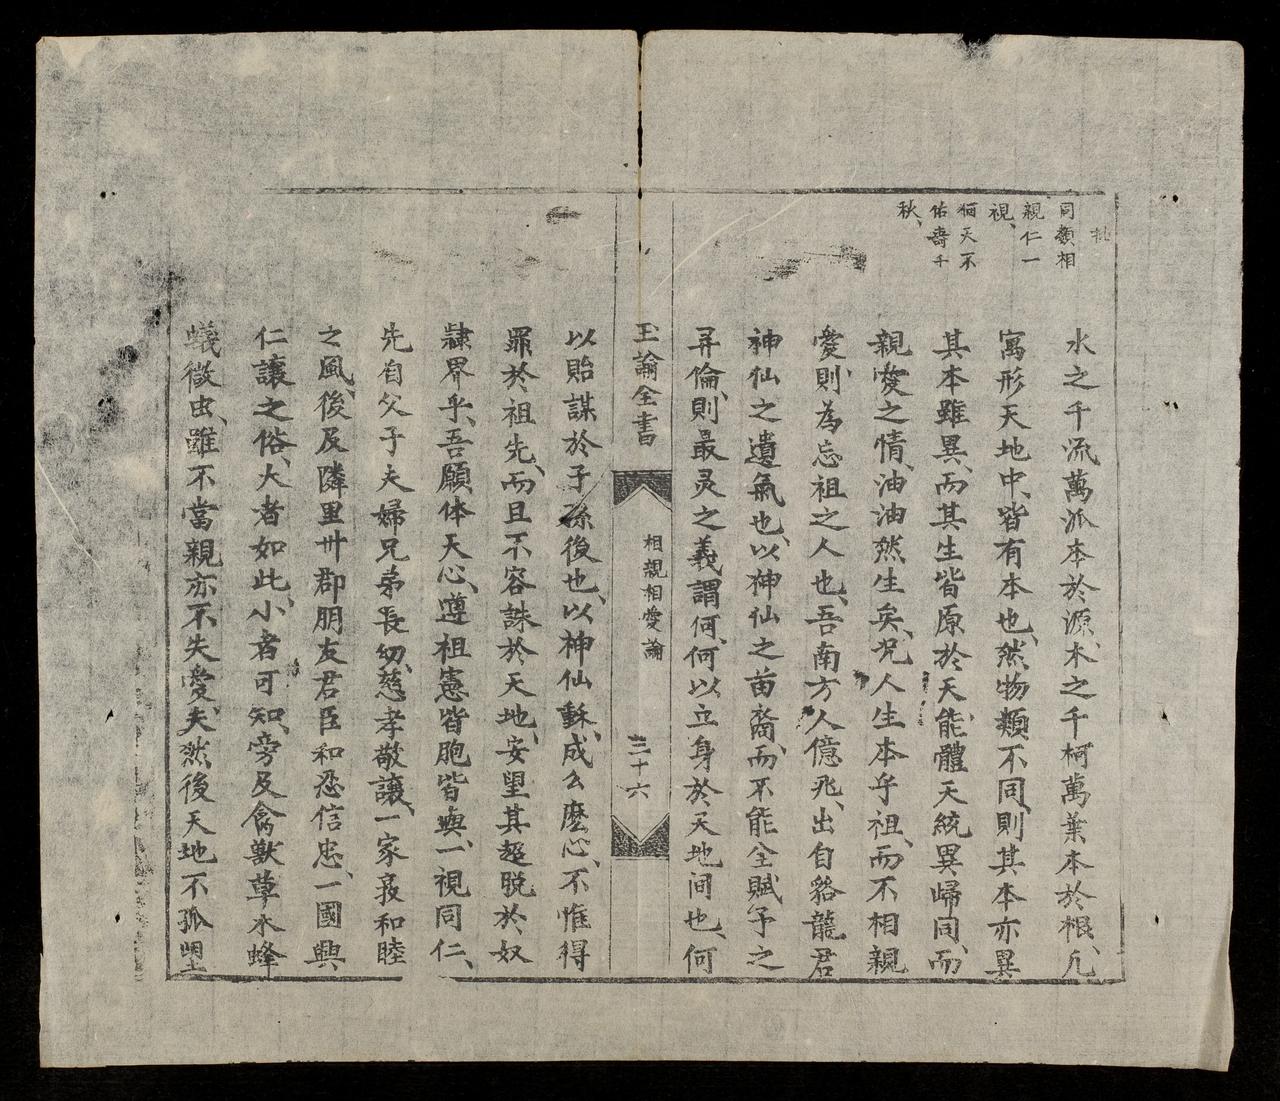 批
同類相
親仁一
視、
獨天不
佑壽千
秋、
水之千流萬派本於源、木之千柯萬葉本於根、凢
寓形天地中、皆有本也、然物類不同、則其本亦異
其本雖異、而其生皆原於天、能體天統異歸同、而
親愛之情、油油然生矣、况人生本乎祖、而不相親
愛、則為忘祖之人也、吾南方人億兆、出自貉龍君
神仙之遺氣也、以神仙之苗裔、而不能全賦予之
彛倫、則最灵之義謂何、何以立身於天地间也、何
玉諭全書
相親相愛論
三十六
以貽謀於子孫後也、以神仙蘇成么麽心、不惟得
罪於祖先、而且不容誅於天地、安望其超脱於奴
隸界乎、吾願体天心、遵祖憲皆胞皆與、一視同仁、
先自父子夫婦兄弟長幼、慈孝敬讓、一家㝡和睦
之風、後及隣里卅郡朋友君臣和忍信忠、一國興
仁讓之俗、大者如此、小者可知、旁及禽獸草木蜂
蟻微虫、雖不當親亦不失愛、夫然後天地不孤